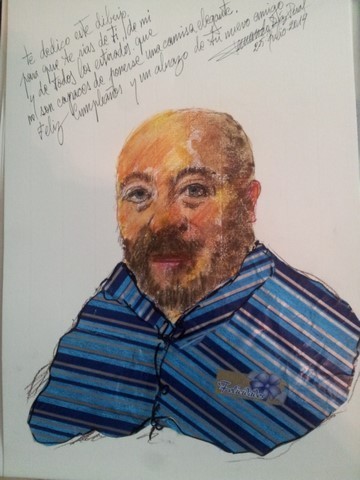 te dedico este dibujo
para que te rias de ti, de mi
y de todos los estirados que
no son capaces de ponerse una camisa elegante.
Feliz Cumpleaños y un abrazo de tu nuevo amigo
Fernando
25 Julio 2014